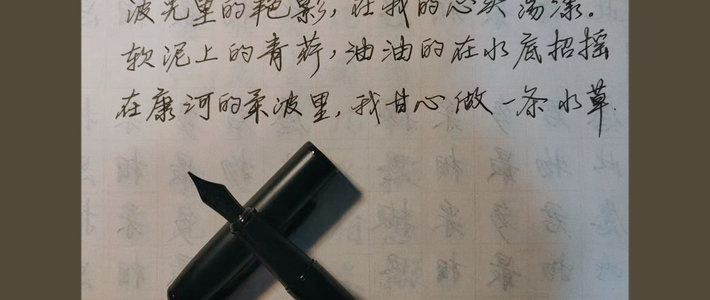 波光里的艳影，在我的心头荡漾。
软泥上的青荇，油油的在水底招摇
在康河的柔波里，我甘心做一条水草.